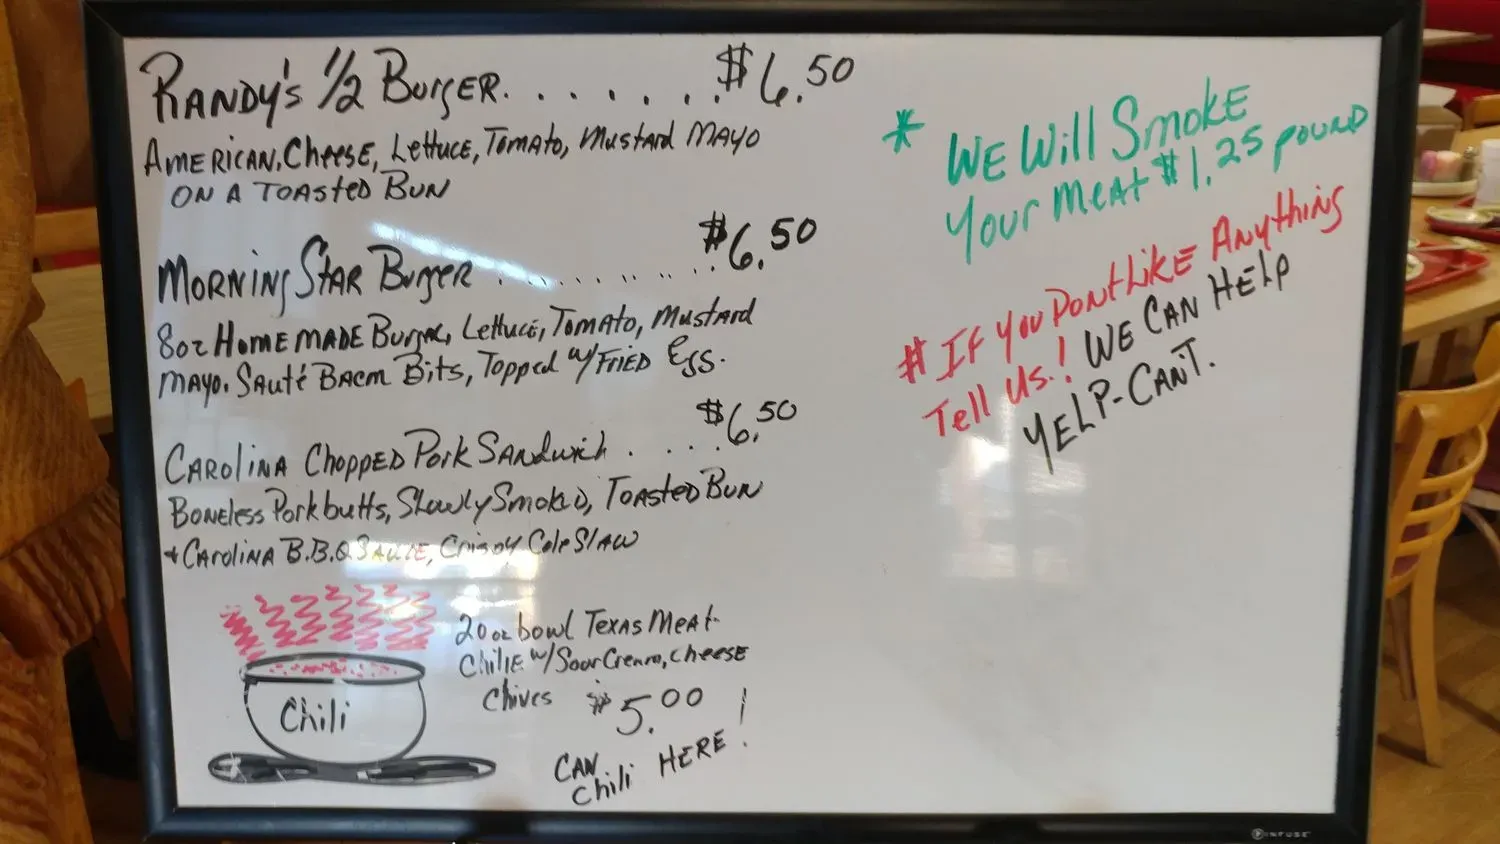 RANDY'S 1/2 BURGER. . . . . . . $6.50
AMERICAN, CHEESE, LETTUCE, TOMATO, MUSTARD MAYO
ON A TOASTED BUN
MORNING STAR BURGER . . . . . . . . . . $6.50
8oz HOMEMADE BURGER, LETTUCE, TOMATO, MUSTARD
MAYO. SAUTÉ BACON BITS, TOPPED w/FRIED EGG.
CAROLINA CHOPPED PORK SANDWICH . . . . $6.50
BONELESS PORKBUTTS, SLOWLY SMOKED, TOASTED BUN
+ CAROLINA B.B.Q SAUCE, CRISPY COLE SLAW
20oz bowl TEXAS MEAT
CHILIE w/SOUR CREAM, CHEESE
CHIVES $5.00
Chili
CAN
Chili HERE!
* WE Will SMOKE
YOUR MEAT $1.25 POUND
# IF YOU DONT LIKE ANYTHING
TELL US.! WE CAN HELP
YELP-CAN'T.
INFUSE